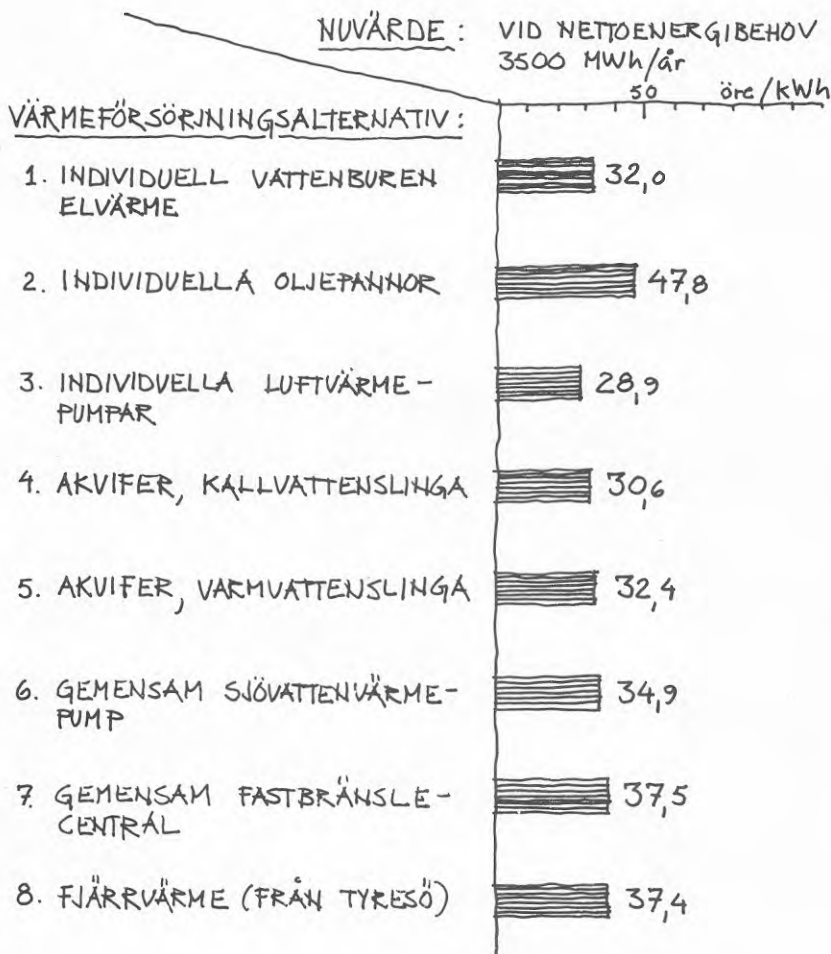 NUVÄRDE: VID NETTOENERGIBEHOV
3500 MWh/år
50 öre/kWh
VÄRMEFÖRSÖRJNINGSALTERNATIV:
1. INDIVIDUELL VATTENBUREN
ELVÄRME
32,0
2. INDIVIDUELLA OLJEPANNOR
47,8
3. INDIVIDUELLA LUFTVÄRME-
PUMPAR
28,9
4. AKVIFER, KALLVATTENSLINGA
30,6
5. AKVIFER, VARMVATTENSLINGA
32,4
6. GEMENSAM SJÖVATTENVÄRME-
PUMP
34,9
7. GEMENSAM FASTBRÄNSLE-
CENTRAL
37,5
8. FJÄRRVÄRME (FRÅN TYRESÖ)
37,4